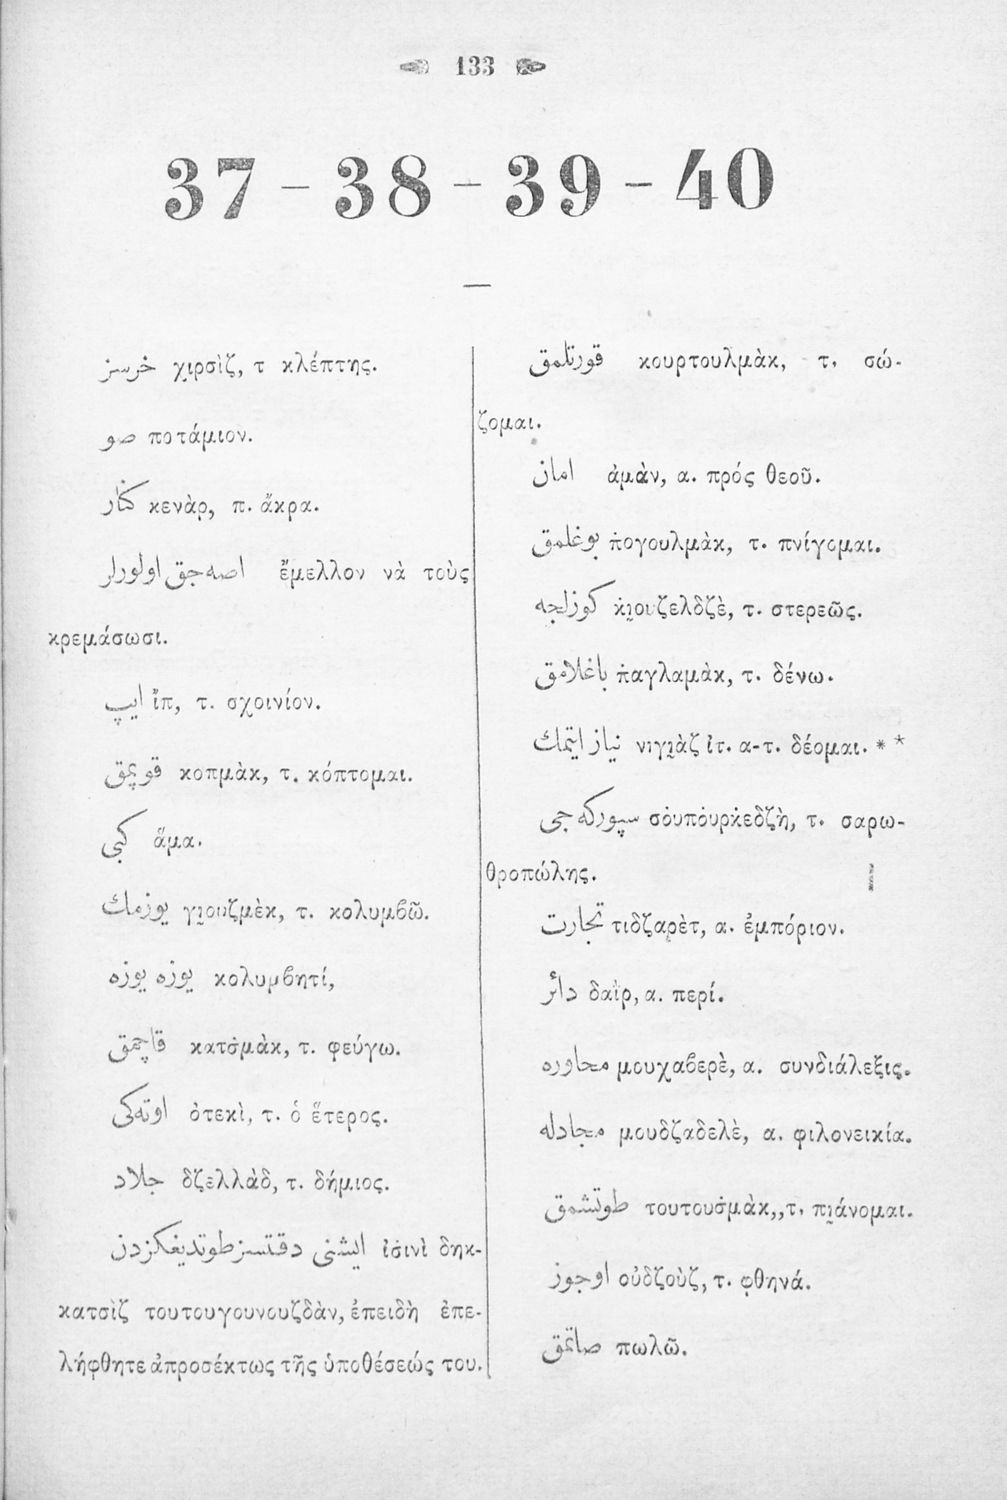 133
37 - 38 - 39 - 40
خرسز χιρσὶζ, τ κλέπτης.
صو ποτάμιον.
كنار κενὰρ, π. ἄκρα.
اصه جق اولورلر ἔμελλον νὰ τοὺς
κρεμάσωσι.
ايپ ἲπ, τ. σχοινίον.
قوپمق κοπμὰκ, τ. κόπτομαι.
كبى ἅμα.
يوزمك γιουζμὲκ, τ. κολυμβῶ.
يوزه يوزه κολυμβητί,
قاچمق κατσμὰκ, τ. φεύγω.
اوته كى ὀτεκὶ, τ. ὁ ἕτερος.
جلاد δζελλὰδ, τ. δήμιος.
ايشنى دقتسز طوتديغكزدن ἰσινὶ δηκ-
κατσὶζ τουτουγουνουζδὰν, ἐπειδὴ ἐπε-
λήφθητε ἀπροσέκτως τῆς ὑποθέσεώς του.
قورتلمق κουρτουλμὰκ, τ. σώ-
ζομαι.
امان ἀμὰν, α. πρός θεοῦ.
بوغلمق πογουλμὰκ, τ. πνίγομαι.
كوزلجه κιουζελδζὲ, τ. στερεῶς.
باغلامق παγλαμὰκ, τ. δένω.
نياز ايتمك νιγιὰζ ἰτ. α-τ. δέομαι. * *
سپوركه جى σουπουρκεδζὴ, τ. σαρω-
θροπώλης.
تجارت τιδζαρὲτ, α. ἐμπόριον.
دائر δαῒρ, α. περί.
محاوره μουχαβερὲ, α. συνδιάλεξις.
مجادله μουδζαδελὲ, α. φιλονεικία.
طوتشمق τουτουσμὰκ,,τ. πιάνομαι.
اوجوز οὐδζοὺζ, τ. φθηνά.
صاتمق πωλῶ.